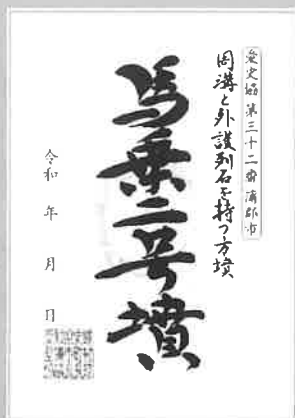 愛史協 第三十二番 蒲郡市
周溝と外護列石を持つ方墳
馬乗二号墳
令和 年 月 日